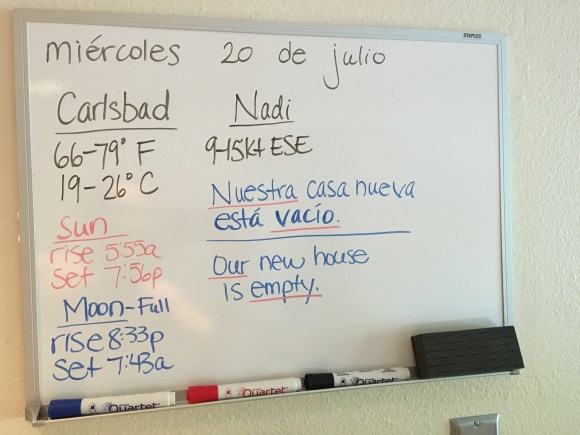 STAPLES
miércoles 20 de julio
Carlsbad
66-79° F
19-26° C
Sun
rise 5:55a
set 7:56p
Moon-Full
rise 8:33p
set 7:43a
Nadi
9-15kt ESE
Nuestra casa nueva
está vacío.
Our new house
is empty.
Quartet
Quartet
Quartet